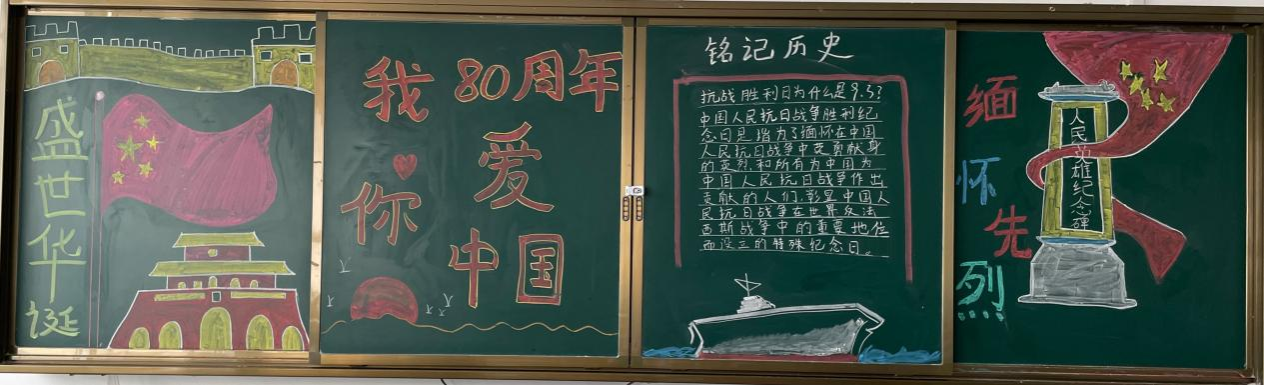 盛世华诞
我爱你
中国
80周年
铭记历史
抗战胜利日为什么是9.3?
中国人民抗日战争胜利纪
念日是指为了缅怀在中国
人民抗日战争中英勇献身
的英烈和所有为中国
中国人民抗日战争作出
贡献的人们,彰显中国人
民抗日战争在世界反法
西斯战争中的重要地位
而设立的特殊纪念日。
缅怀先烈
人民英雄纪念碑